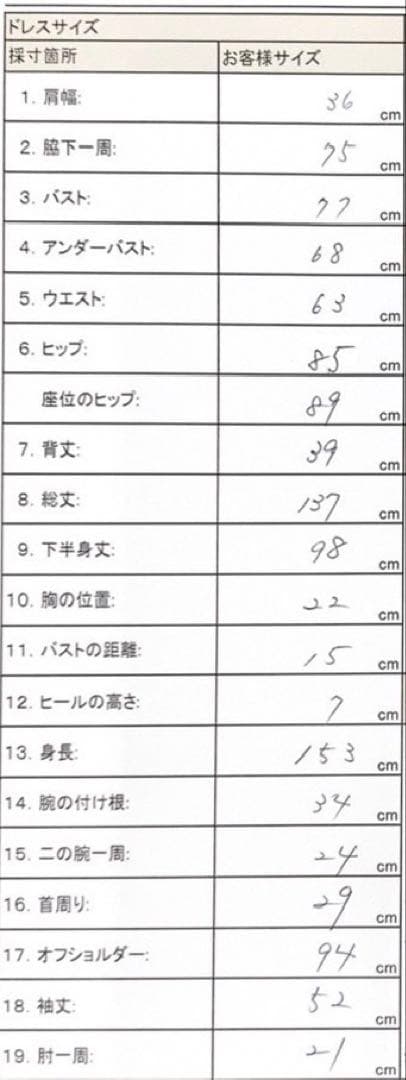 ドレスサイズ
採寸箇所 お客様サイズ
1. 肩幅: 36 cm
2. 脇下一周: 75 cm
3. バスト: 77 cm
4. アンダーバスト: 68 cm
5. ウエスト: 63 cm
6. ヒップ: 85 cm
座位のヒップ: 89 cm
7. 背丈: 39 cm
8. 総丈: 137 cm
9. 下半身丈: 98 cm
10. 胸の位置: 22 cm
11. バストの距離: 15 cm
12. ヒールの高さ: 7 cm
13. 身長: 153 cm
14. 腕の付け根: 34 cm
15. 二の腕一周: 24 cm
16. 首周り: 29 cm
17. オフショルダー: 94 cm
18. 袖丈: 52 cm
19. 肘一周: 21 cm